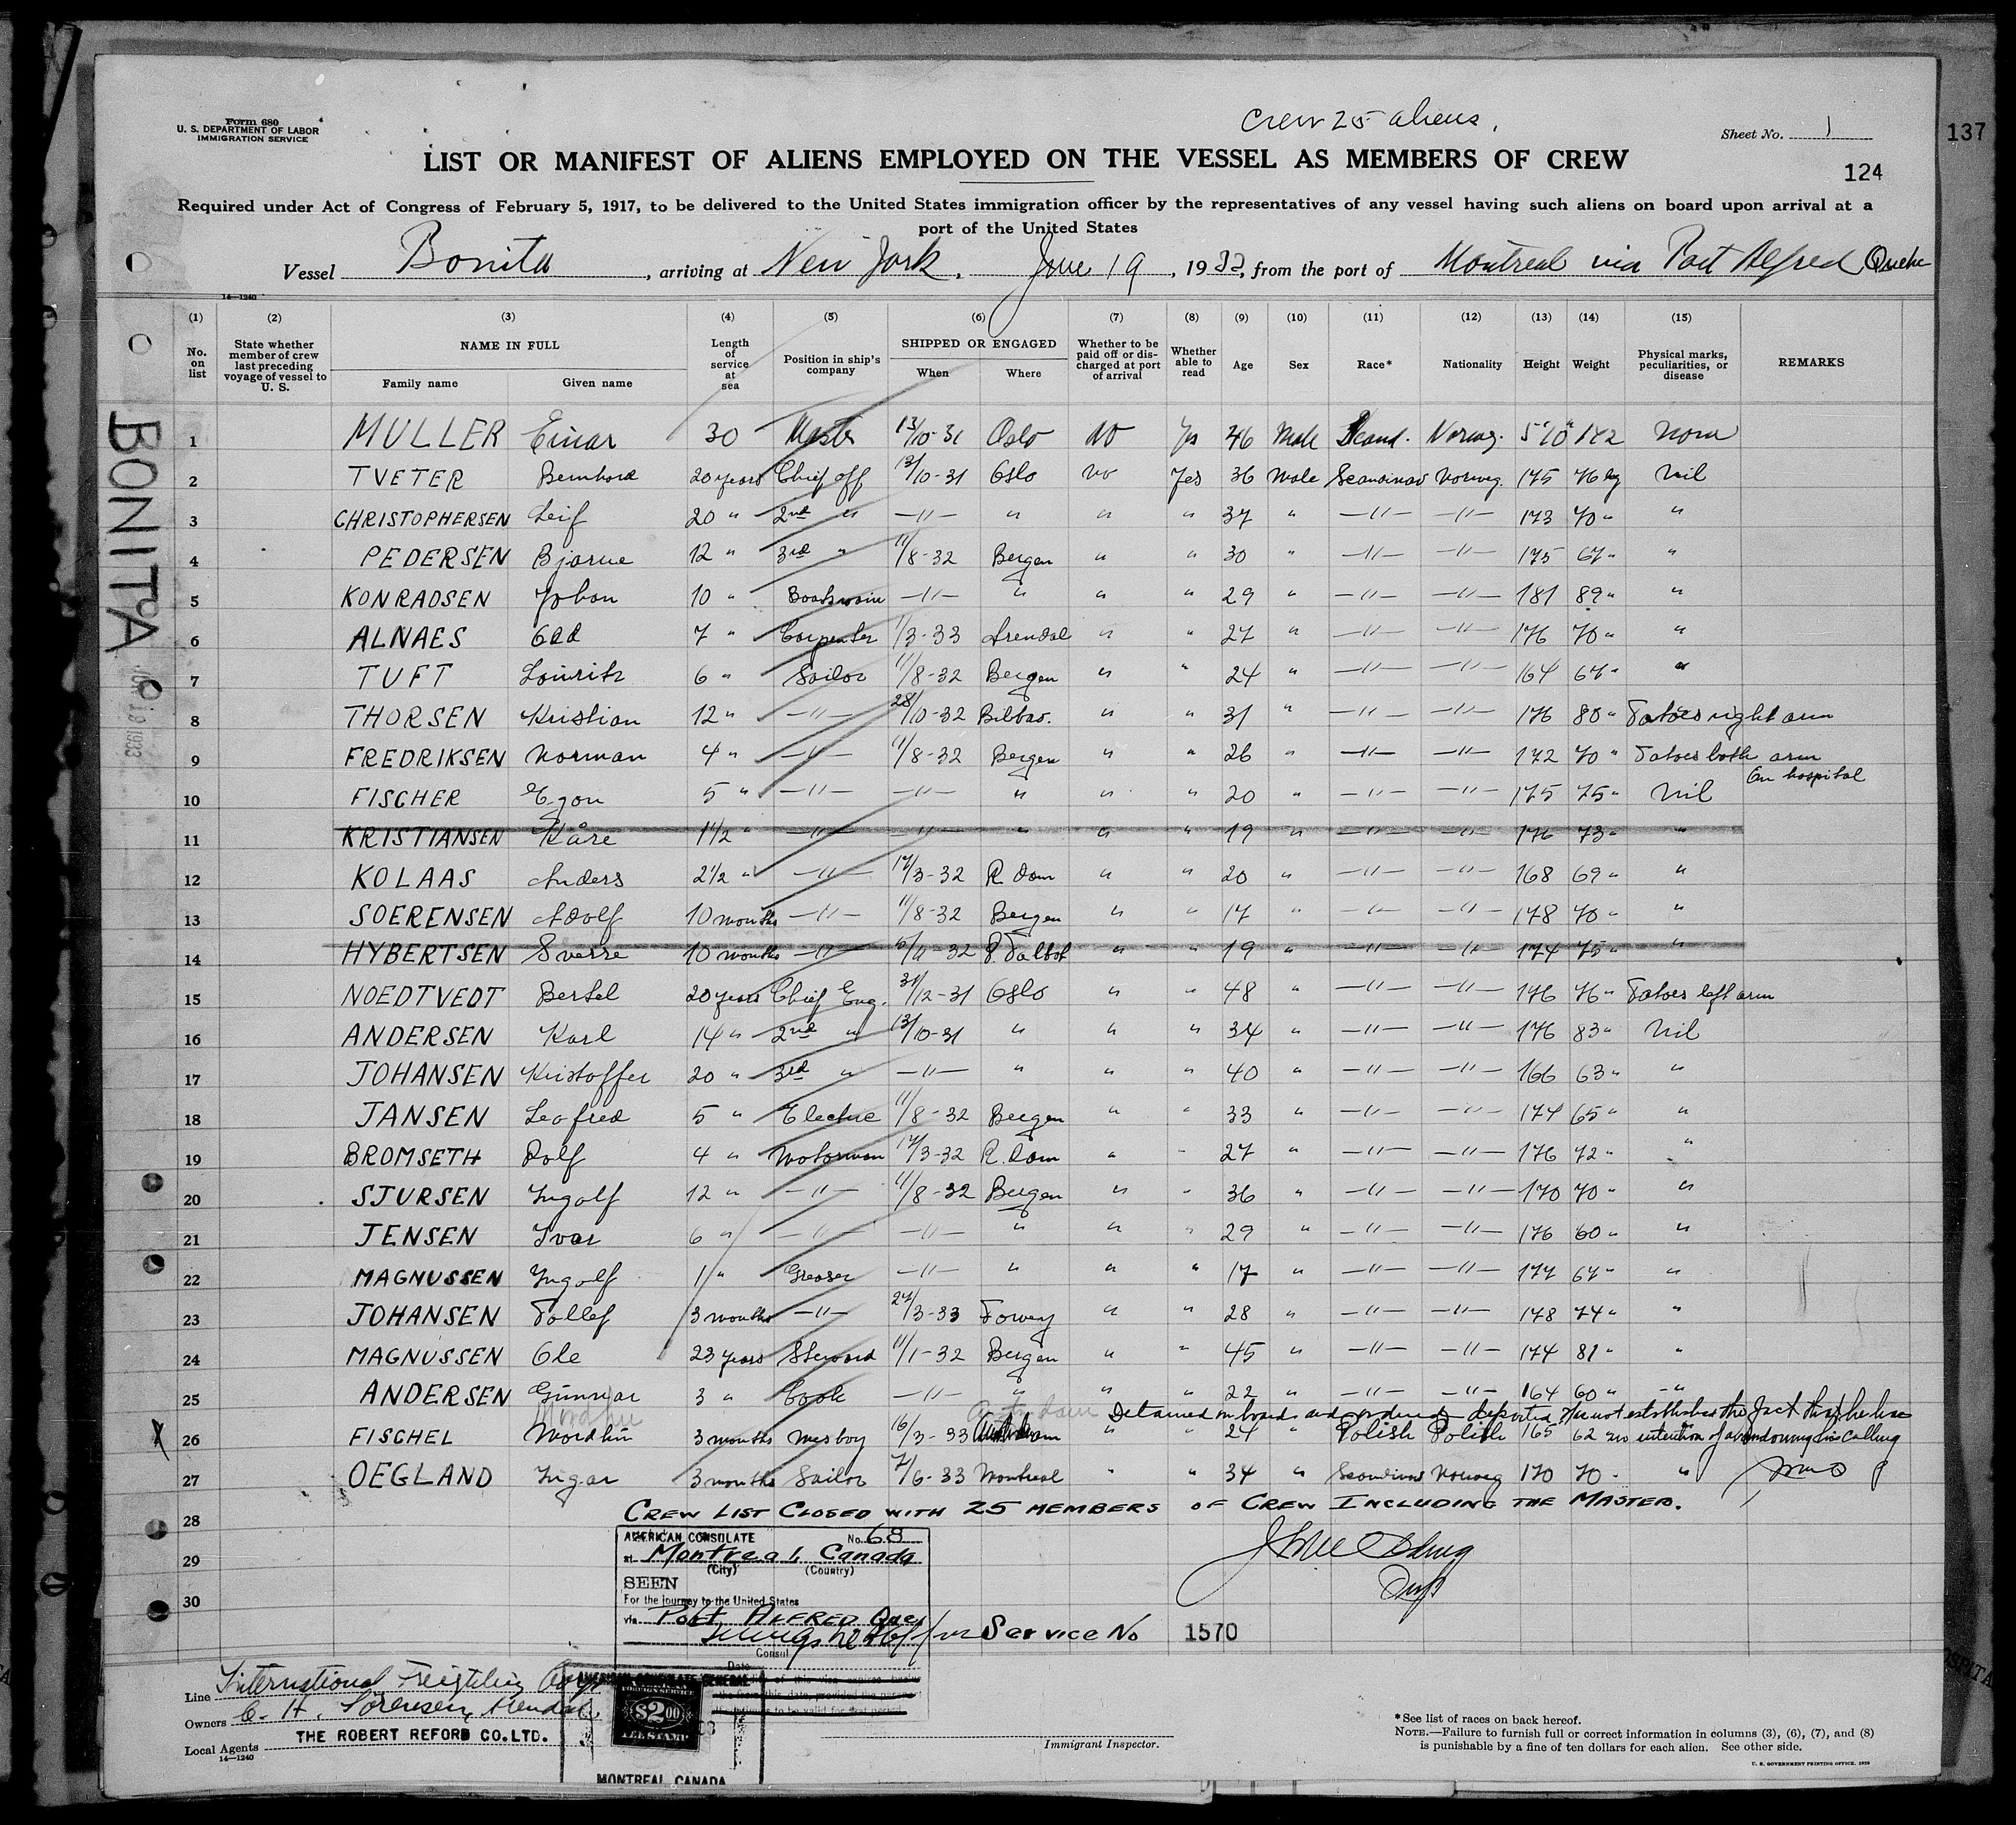 Form 680
U. S. DEPARTMENT OF LABOR
IMMIGRATION SERVICE
Crew 25 aliens.
Sheet No. 1
137
LIST OR MANIFEST OF ALIENS EMPLOYED ON THE VESSEL AS MEMBERS OF CREW
124
Required under Act of Congress of February 5, 1917, to be delivered to the United States immigration officer by the representatives of any vessel having such aliens on board upon arrival at a
port of the United States
Vessel Bonita, arriving at New York. June 19, 1933, from the port of Montreal via Port Alfred Quebec
14—1240
(1) (2) (3) (4) (5) (6) (7) (8) (9) (10) (11) (12) (13) (14) (15)
No. on list State whether member of crew last preceding voyage of vessel to U. S. NAME IN FULL Family name Given name Length of service at sea Position in ship's company SHIPPED OR ENGAGED When Where Whether to be paid off or discharged at port of arrival Whether able to read Age Sex Race* Nationality Height Weight Physical marks, peculiarities, or disease REMARKS
BONITA
1 MULLER Einar 30 Master 13/10-31 Oslo No Yes 46 Male Scand. Norweg. 5'10" 172 None
2 TVETER Bernhard 20 years Chief off 13/10-31 Oslo no Yes 36 Male Scandinav Norweg. 175 76 kg Nil
3 CHRISTOPHERSEN Leif 20 " 2nd " —"— " " " 37 " —"— —"— 173 70 " "
4 PEDERSEN Bjarne 12 " 3rd " 11/8-32 Bergen " " 30 " —"— —"— 175 67 " "
5 KONRADSEN Johan 10 " Boatswain —"— " " " 29 " —"— —"— 181 89 " "
6 ALNAES Odd 7 " Carpenter 1/3-33 Arendal " " 27 " —"— —"— 176 70 " "
7 TUFT Louritz 6 " Sailor 11/8-32 Bergen " " 24 " —"— —"— 164 67 " "
8 THORSEN Kristian 12 " —"— 28/10-32 Bilbao. " " 31 " —"— —"— 176 80 " Tatoes right arm
9 FREDRIKSEN Norman 4 " —"— 11/8-32 Bergen " " 26 " —"— —"— 172 70 " Tatoes both arm
10 FISCHER Egon 5 " —"— —"— " " " 20 " —"— —"— 175 75 " Nil
On hospital
11 KRISTIANSEN Kåre 1 1/2 " —"— —"— " " " 19 " —"— —"— 176 73 " "
12 KOLAAS Anders 2 1/2 " —"— 17/3-32 R. dam " " 20 " —"— —"— 168 69 " "
13 SOERENSEN Adolf 10 months —"— 11/8-32 Bergen " " 17 " —"— —"— 178 70 " "
14 HYBERTSEN Sverre 10 months —"— P. Talbot " " 19 " —"— —"— 174 75 " "
15 NOEDTVEDT Bertel 20 years Chief Eng. 31/12-31 Oslo " " 48 " —"— —"— 176 76 " Tatoes left arm
16 ANDERSEN Karl 14 " 2nd " 13/10-31 " " " 34 " —"— —"— 176 83 " Nil
17 JOHANSEN Kristoffer 20 " 3rd " —"— " " " 40 " —"— —"— 166 63 " "
18 JANSEN Leofred 5 " Electric 11/8-32 Bergen " " 33 " —"— —"— 174 65 " "
19 BROMSETH Rolf 4 " Motorman 17/3-32 R. dam " " 27 " —"— —"— 176 72 " "
20 SJURSEN Ingolf 12 " —"— 11/8-32 Bergen " " 36 " —"— —"— 170 70 " "
21 JENSEN Ivar 6 " —"— —"— " " " 29 " —"— —"— 176 60 " "
22 MAGNUSSEN Ingolf 1 " Greaser —"— " " " 17 " —"— —"— 177 67 " "
23 JOHANSEN Tollef 3 months —"— 27/3-33 Fowey " " 28 " —"— —"— 178 74 " "
24 MAGNUSSEN Ole 23 years Steward 11/1-32 Bergen " " 45 " —"— —"— 174 81 " "
25 ANDERSEN Gunnar 3 " Cook —"— " " " 22 " —"— —"— 164 60 " —"
Detained on board and ordered deported. Has not established the fact that he has
26 FISCHEL Mordhin 3 months Mesboy 16/3-33 " " 24 " Polish Polish 165 62 no intention of abandoning his calling
27 OEGLAND Ingar 3 months Sailor 7/6-33 Montreal " " 34 " Scandinav Norweg 170 70 " "
CREW LIST CLOSED WITH 25 MEMBERS OF CREW INCLUDING THE MASTER.
28
29
30
AMERICAN CONSULATE No. 68
at Montreal, Canada
(City) (Country)
SEEN
For the journey to the United States
via Port ALFRED Que
Consul
Date
Service No 1570
AMERICAN CONSULATE GENERAL
$2.00
FEE STAMP
MONTREAL CANADA
Line International Freighting Corp
Owners C. H. Sorensen, Arendal
Local Agents THE ROBERT REFORD CO. LTD.
14—1240
Immigrant Inspector.
*See list of races on back hereof.
NOTE.—Failure to furnish full or correct information in columns (3), (6), (7), and (8)
is punishable by a fine of ten dollars for each alien. See other side.
U. S. GOVERNMENT PRINTING OFFICE. 1929